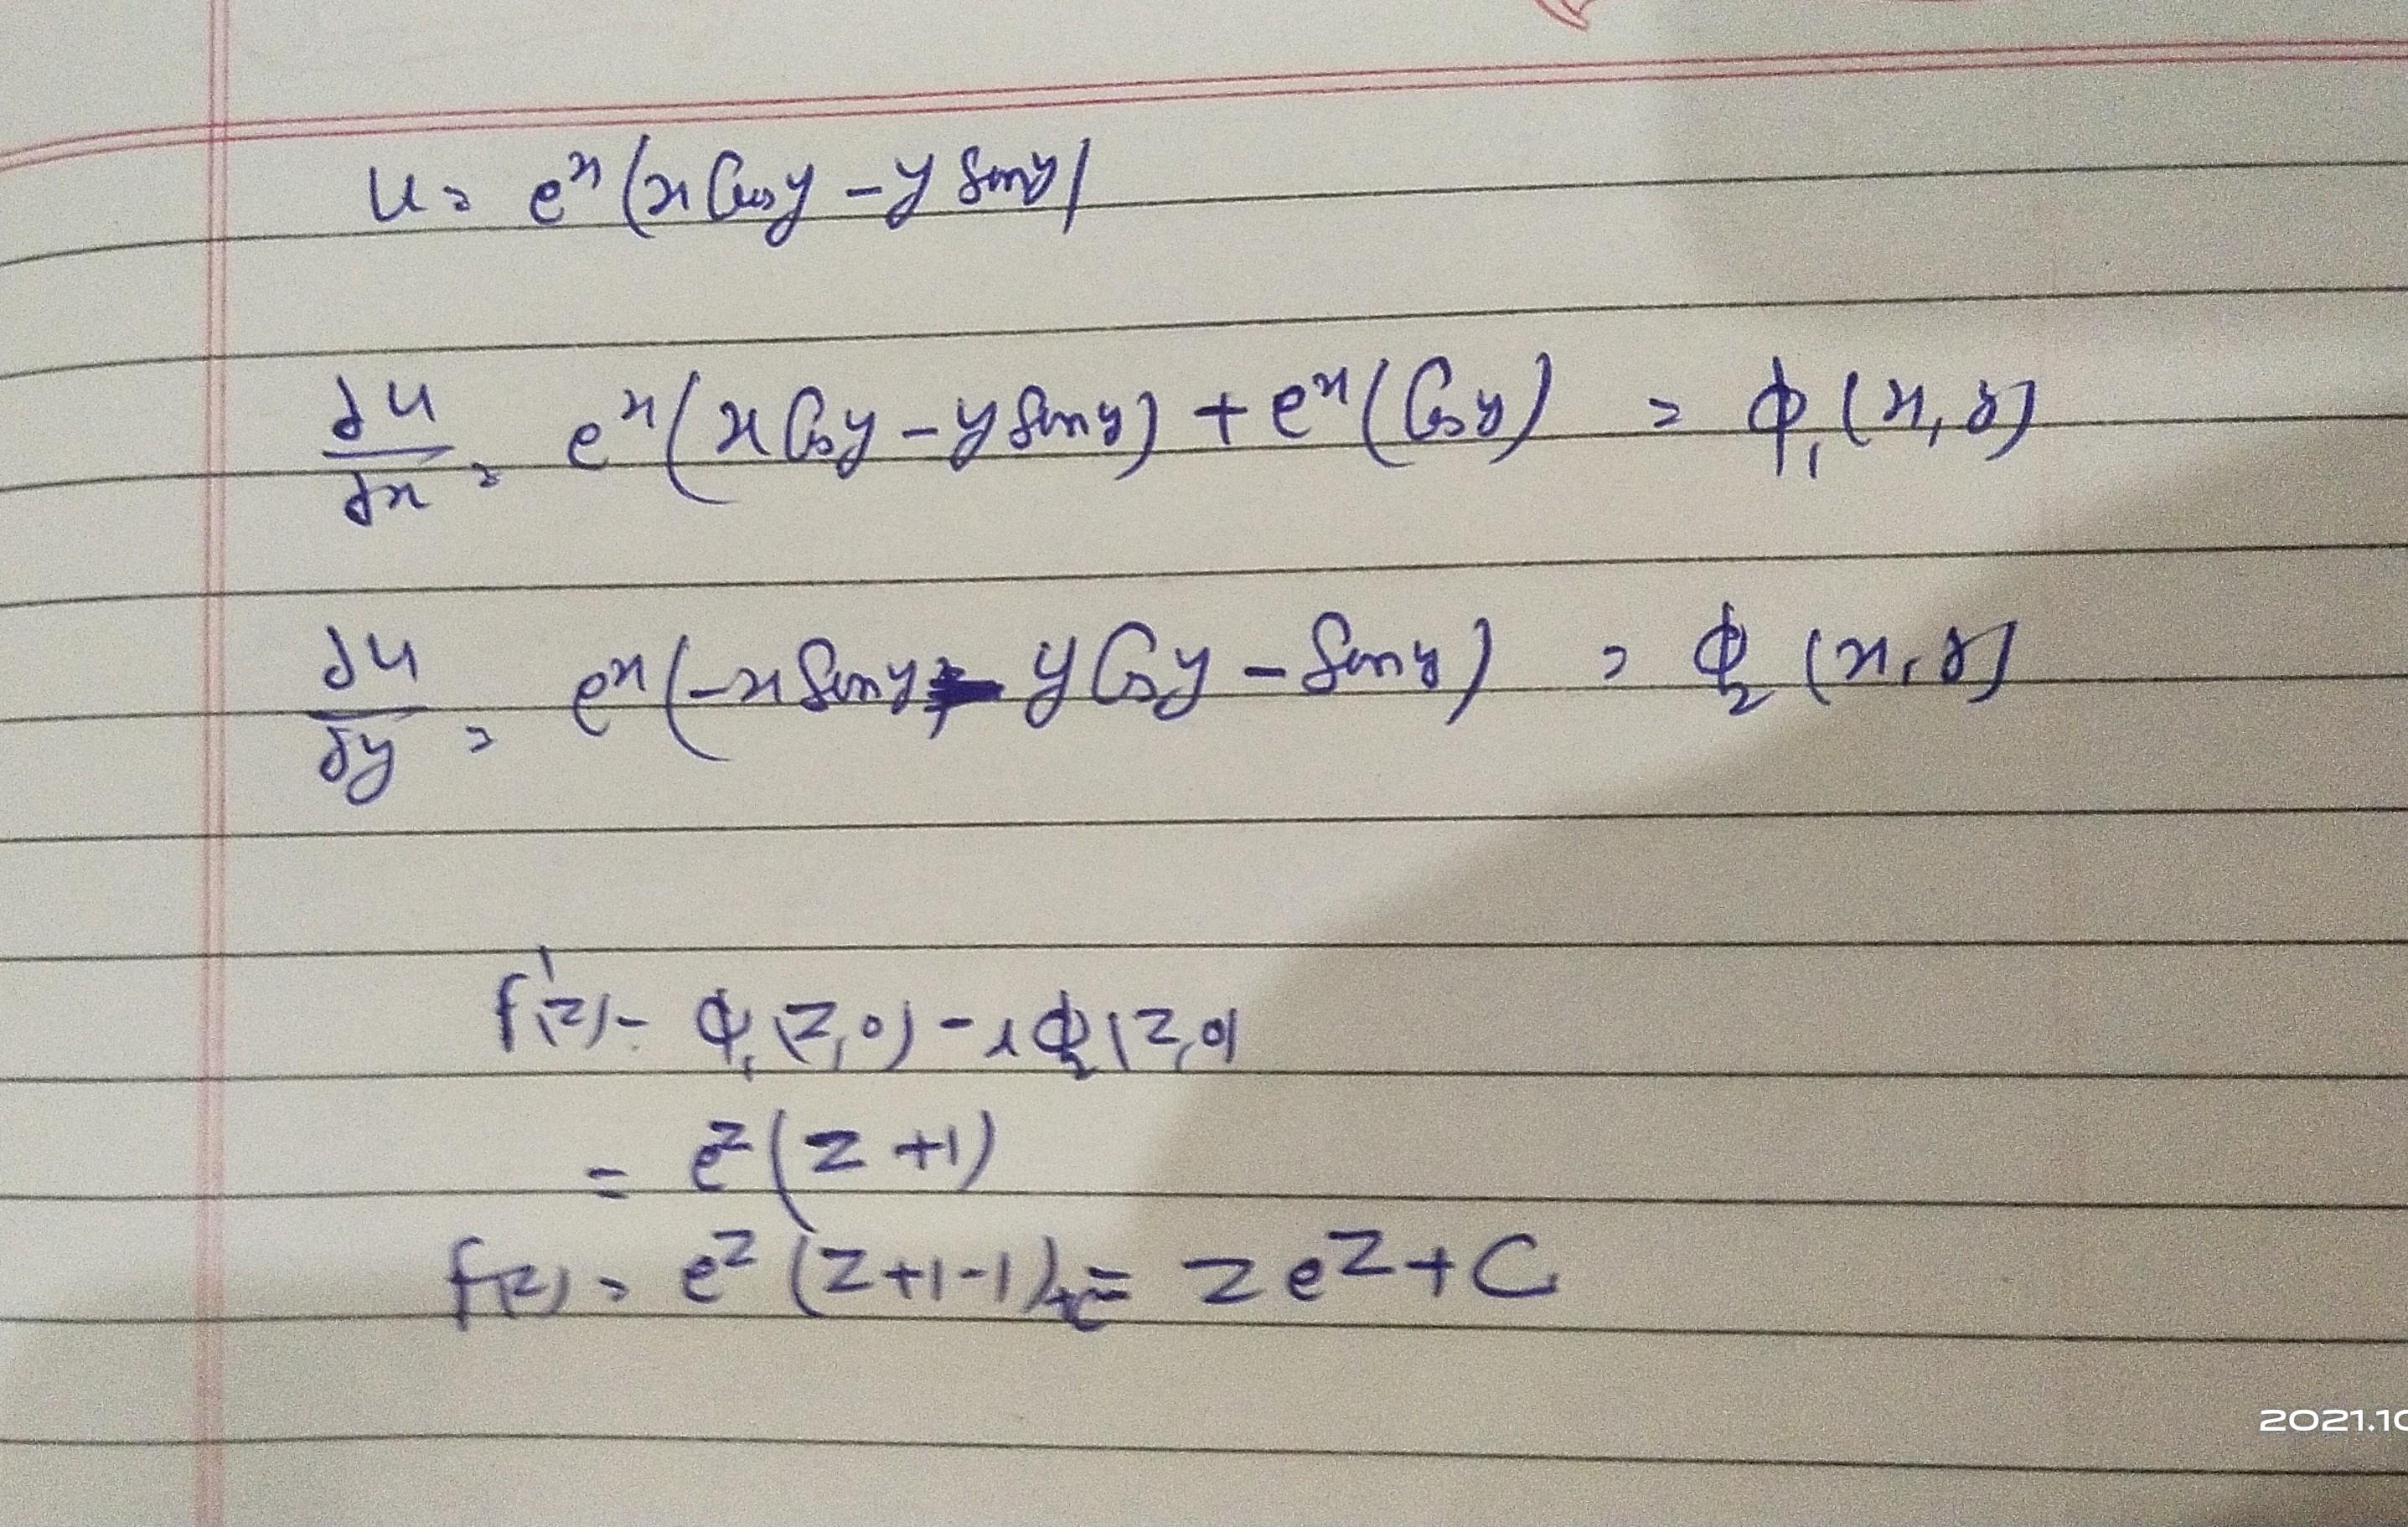 u = e^x (x Cos y - y Sin y)
∂u/∂x = e^x (x Cos y - y Sin y) + e^x (Cos y) = ϕ₁ (x, y)
∂u/∂y = e^x (-x Sin y - y Cos y - Sin y) = ϕ₂ (x, y)
f'(z) = ϕ₁ (z, 0) - i ϕ₂ (z, 0)
= e^z (z + 1)
f(z) = e^z (z+1-1) + c = z e^z + C
2021.10